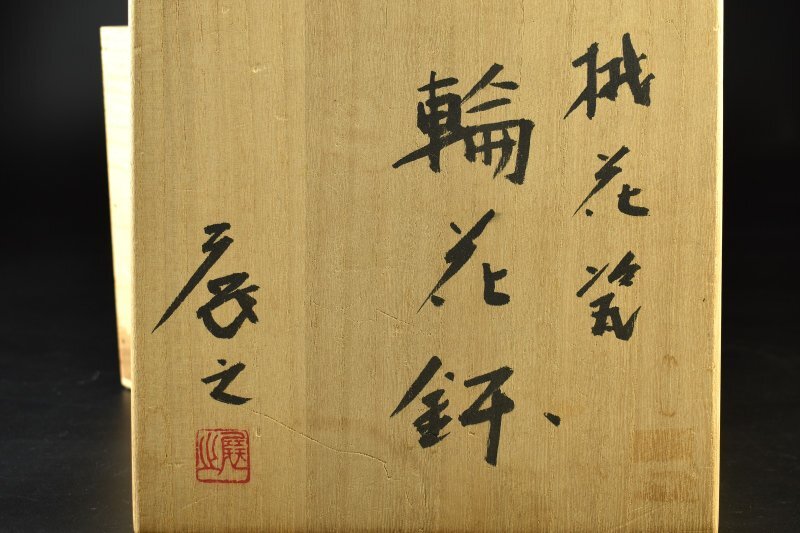 桃花瓷
輪花鉢
辰之